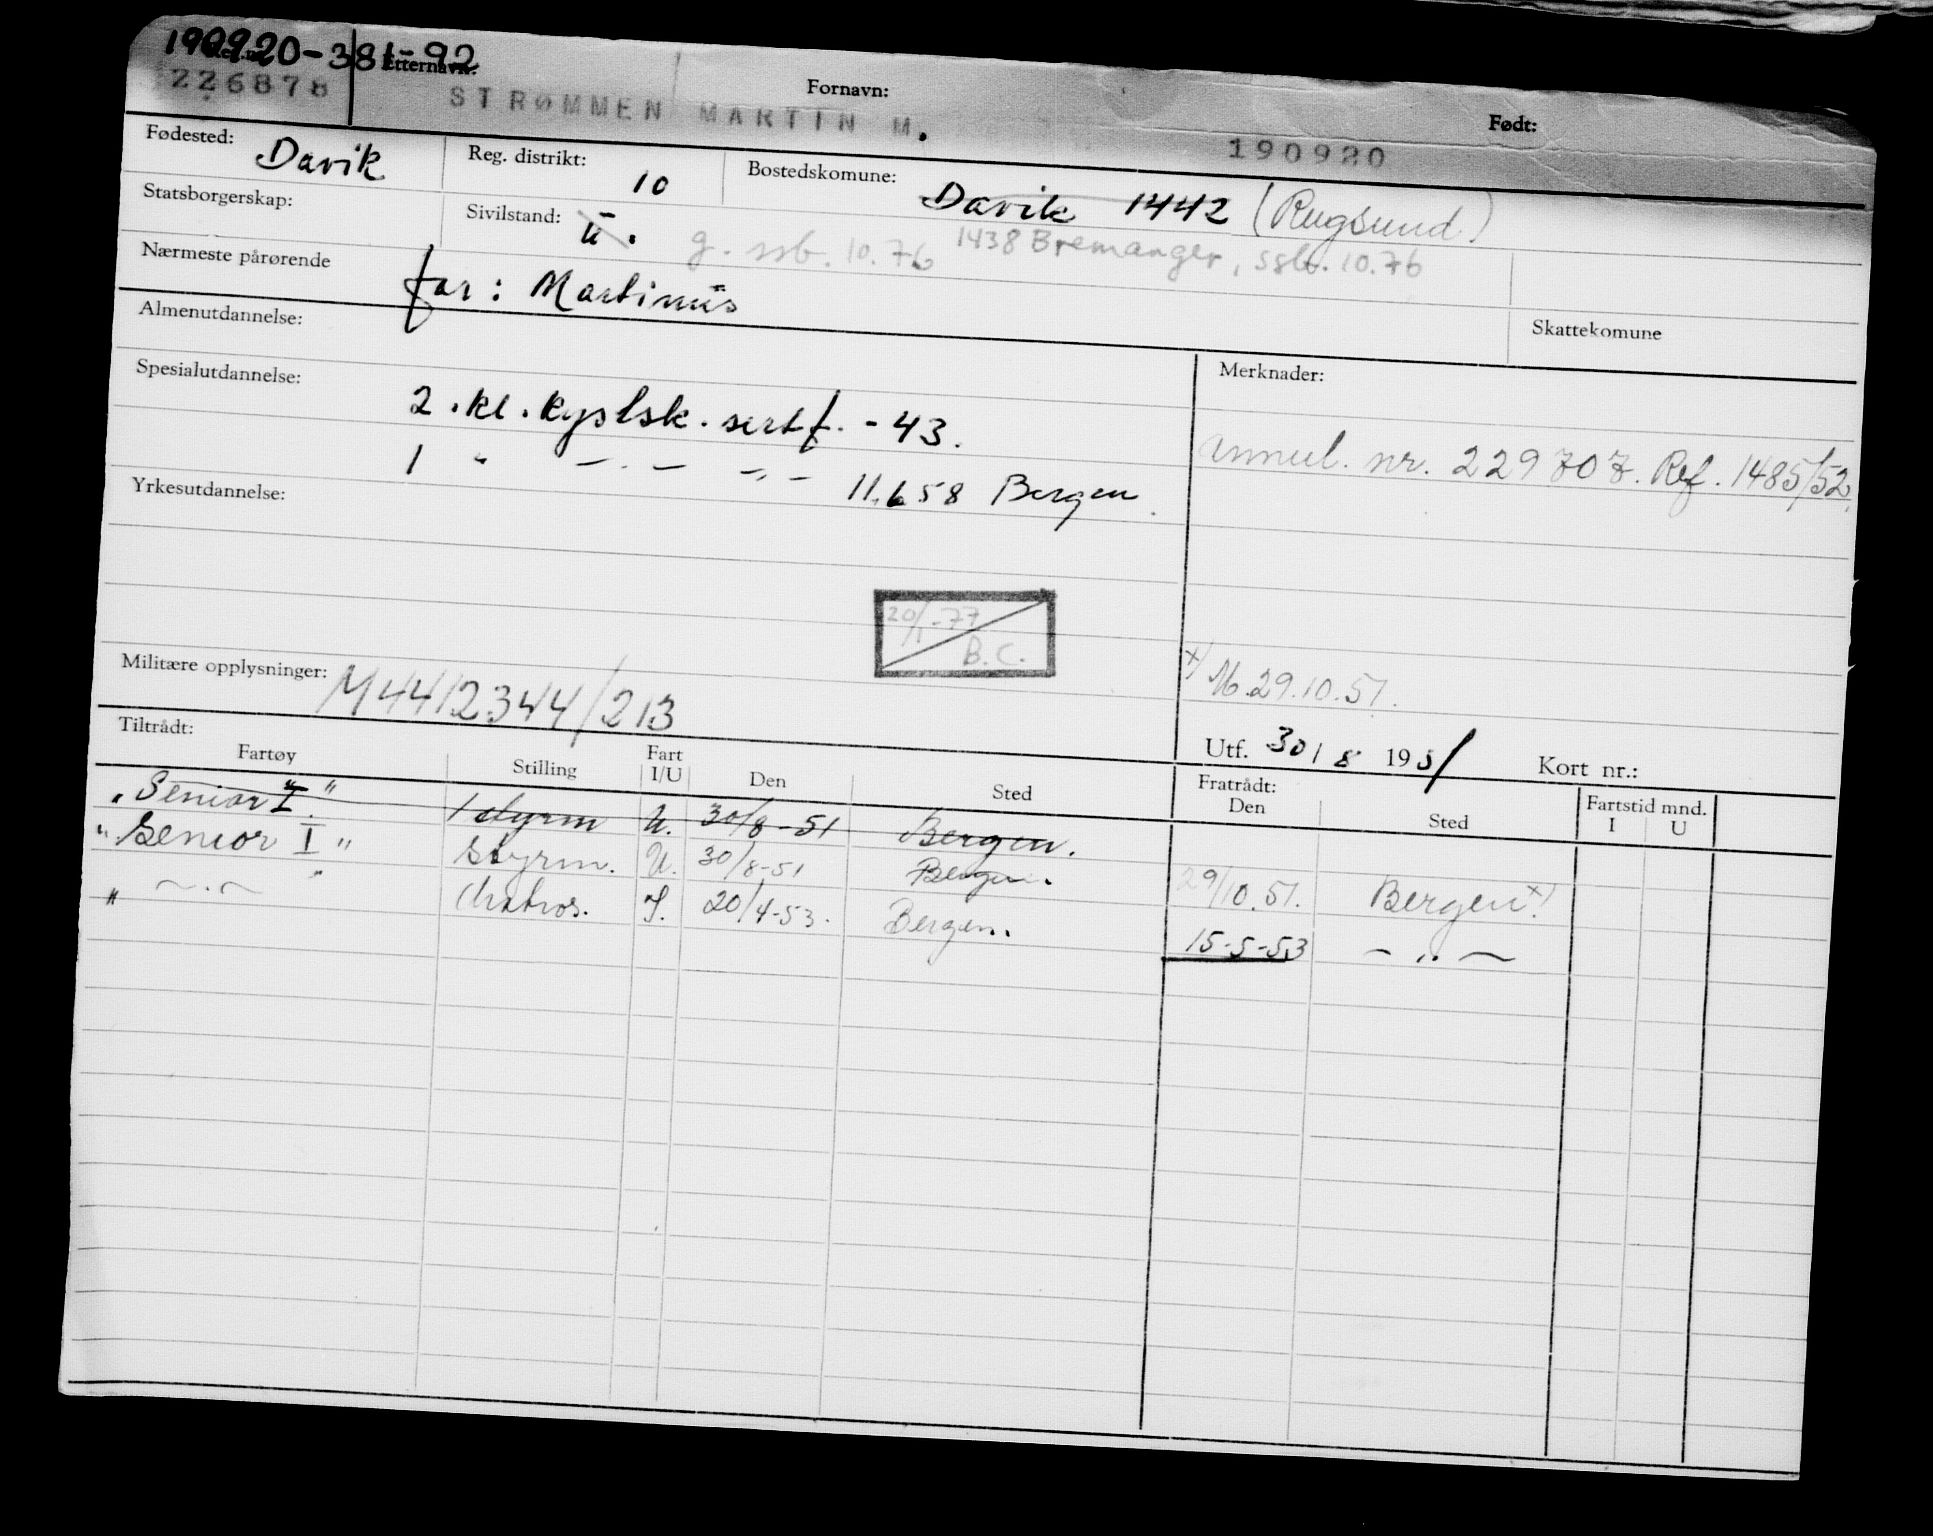 190920-381-92
Etternavn: Fornavn: Født:
226878 STRØMMEN MARTIN M. 190920
Fødested: Davik Reg. distrikt: 10 Bostedskomune: Davik 1442 (Rugsund)
Statsborgerskap: Sivilstand: u. g. ssb. 10.76 1438 Bremanger, ssb. 10.76
Nærmeste pårørende far: Martinus
Skattekomune
Almenutdannelse:
Merknader:
Spesialutdannelse: 2. kl. kystsk. sertf. -43.
annul. nr. 229707. Ref. 1485/52.
1 " — . — — " — 11.6 58 Bergen.
Yrkesutdannelse:
20/1-77
B.C.
Militære opplysninger: M44/2344/213
x) M. 29.10.51.
Utf. 30/8 1951 Kort nr.:
Tiltrådt: Fratrådt:
Fartøy Stilling Fart I/U Den Sted Den Sted Fartstid mnd. I U
"Senior I" 1 styrm U. 30/8-51 Bergen.
"Senior I" Styrm. U. 30/8-51 Bergen. 29/10.51. Bergen x)
" — . — " Matros. I. 20/4-53. Bergen. 15-5-53 — " —